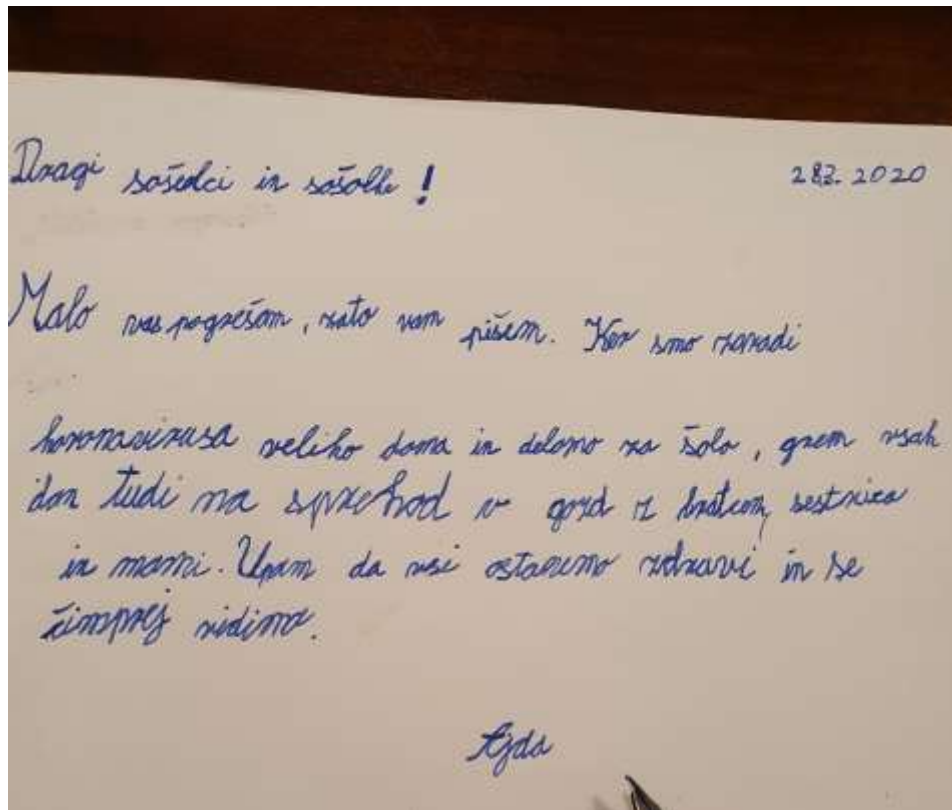 Dragi sošolci in sošolke! 28.3. 2020
Malo vas pogrešam, zato vam pišem. Ker smo zaradi
koronavirusa veliko doma in delamo za šolo, grem vsak
dan tudi na sprehod v gozd z bratcem, sestrico
in mami. Upam da vsi ostanemo zdravi in se
čimprej vidimo.
Ajda